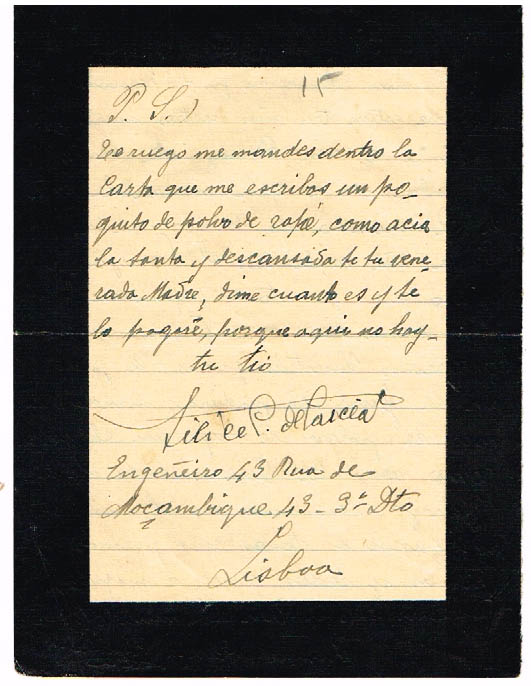 15
P. S.)
Te ruego me mandes dentro la
Carta que me escribas un po-
quito de polvo de rapé, como acia
la santa y descansada de tu vene-
rada Madre, dime cuanto es y te
lo pagaré, porque aqui no hay-
tu tio
P. de
Engeñeiro 43 Rua de
Moçambique 43 - 3º Dto
Lisboa